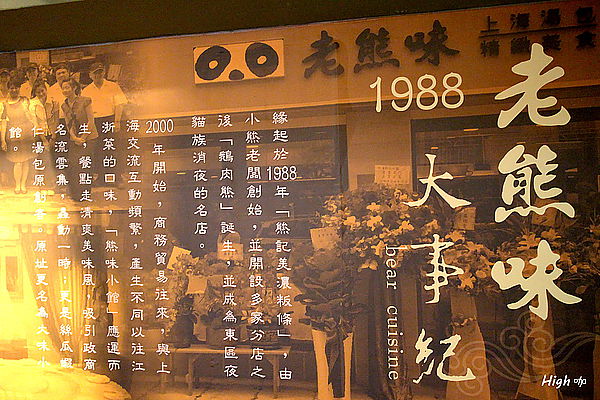 老熊味
上海湯包
精緻蔬食
1988
老熊味
大事紀
bear cuisine
緣起於1988年「熊記美濃粄條」,由
小熊老闆創始,並開設多家分店之
後「鵝肉熊」誕生,並成為東區夜
貓族消夜的名店。
2000年開始,商務貿易往來,與上
海交流互動頻繁,產生不同以往江
浙菜的口味,「熊味小館」應運而
生,餐點走清爽美味風,吸引政商
名流雲集,轟動一時;更是絲瓜蝦
仁湯包原創者。原址更名為大味小
館。
High咖